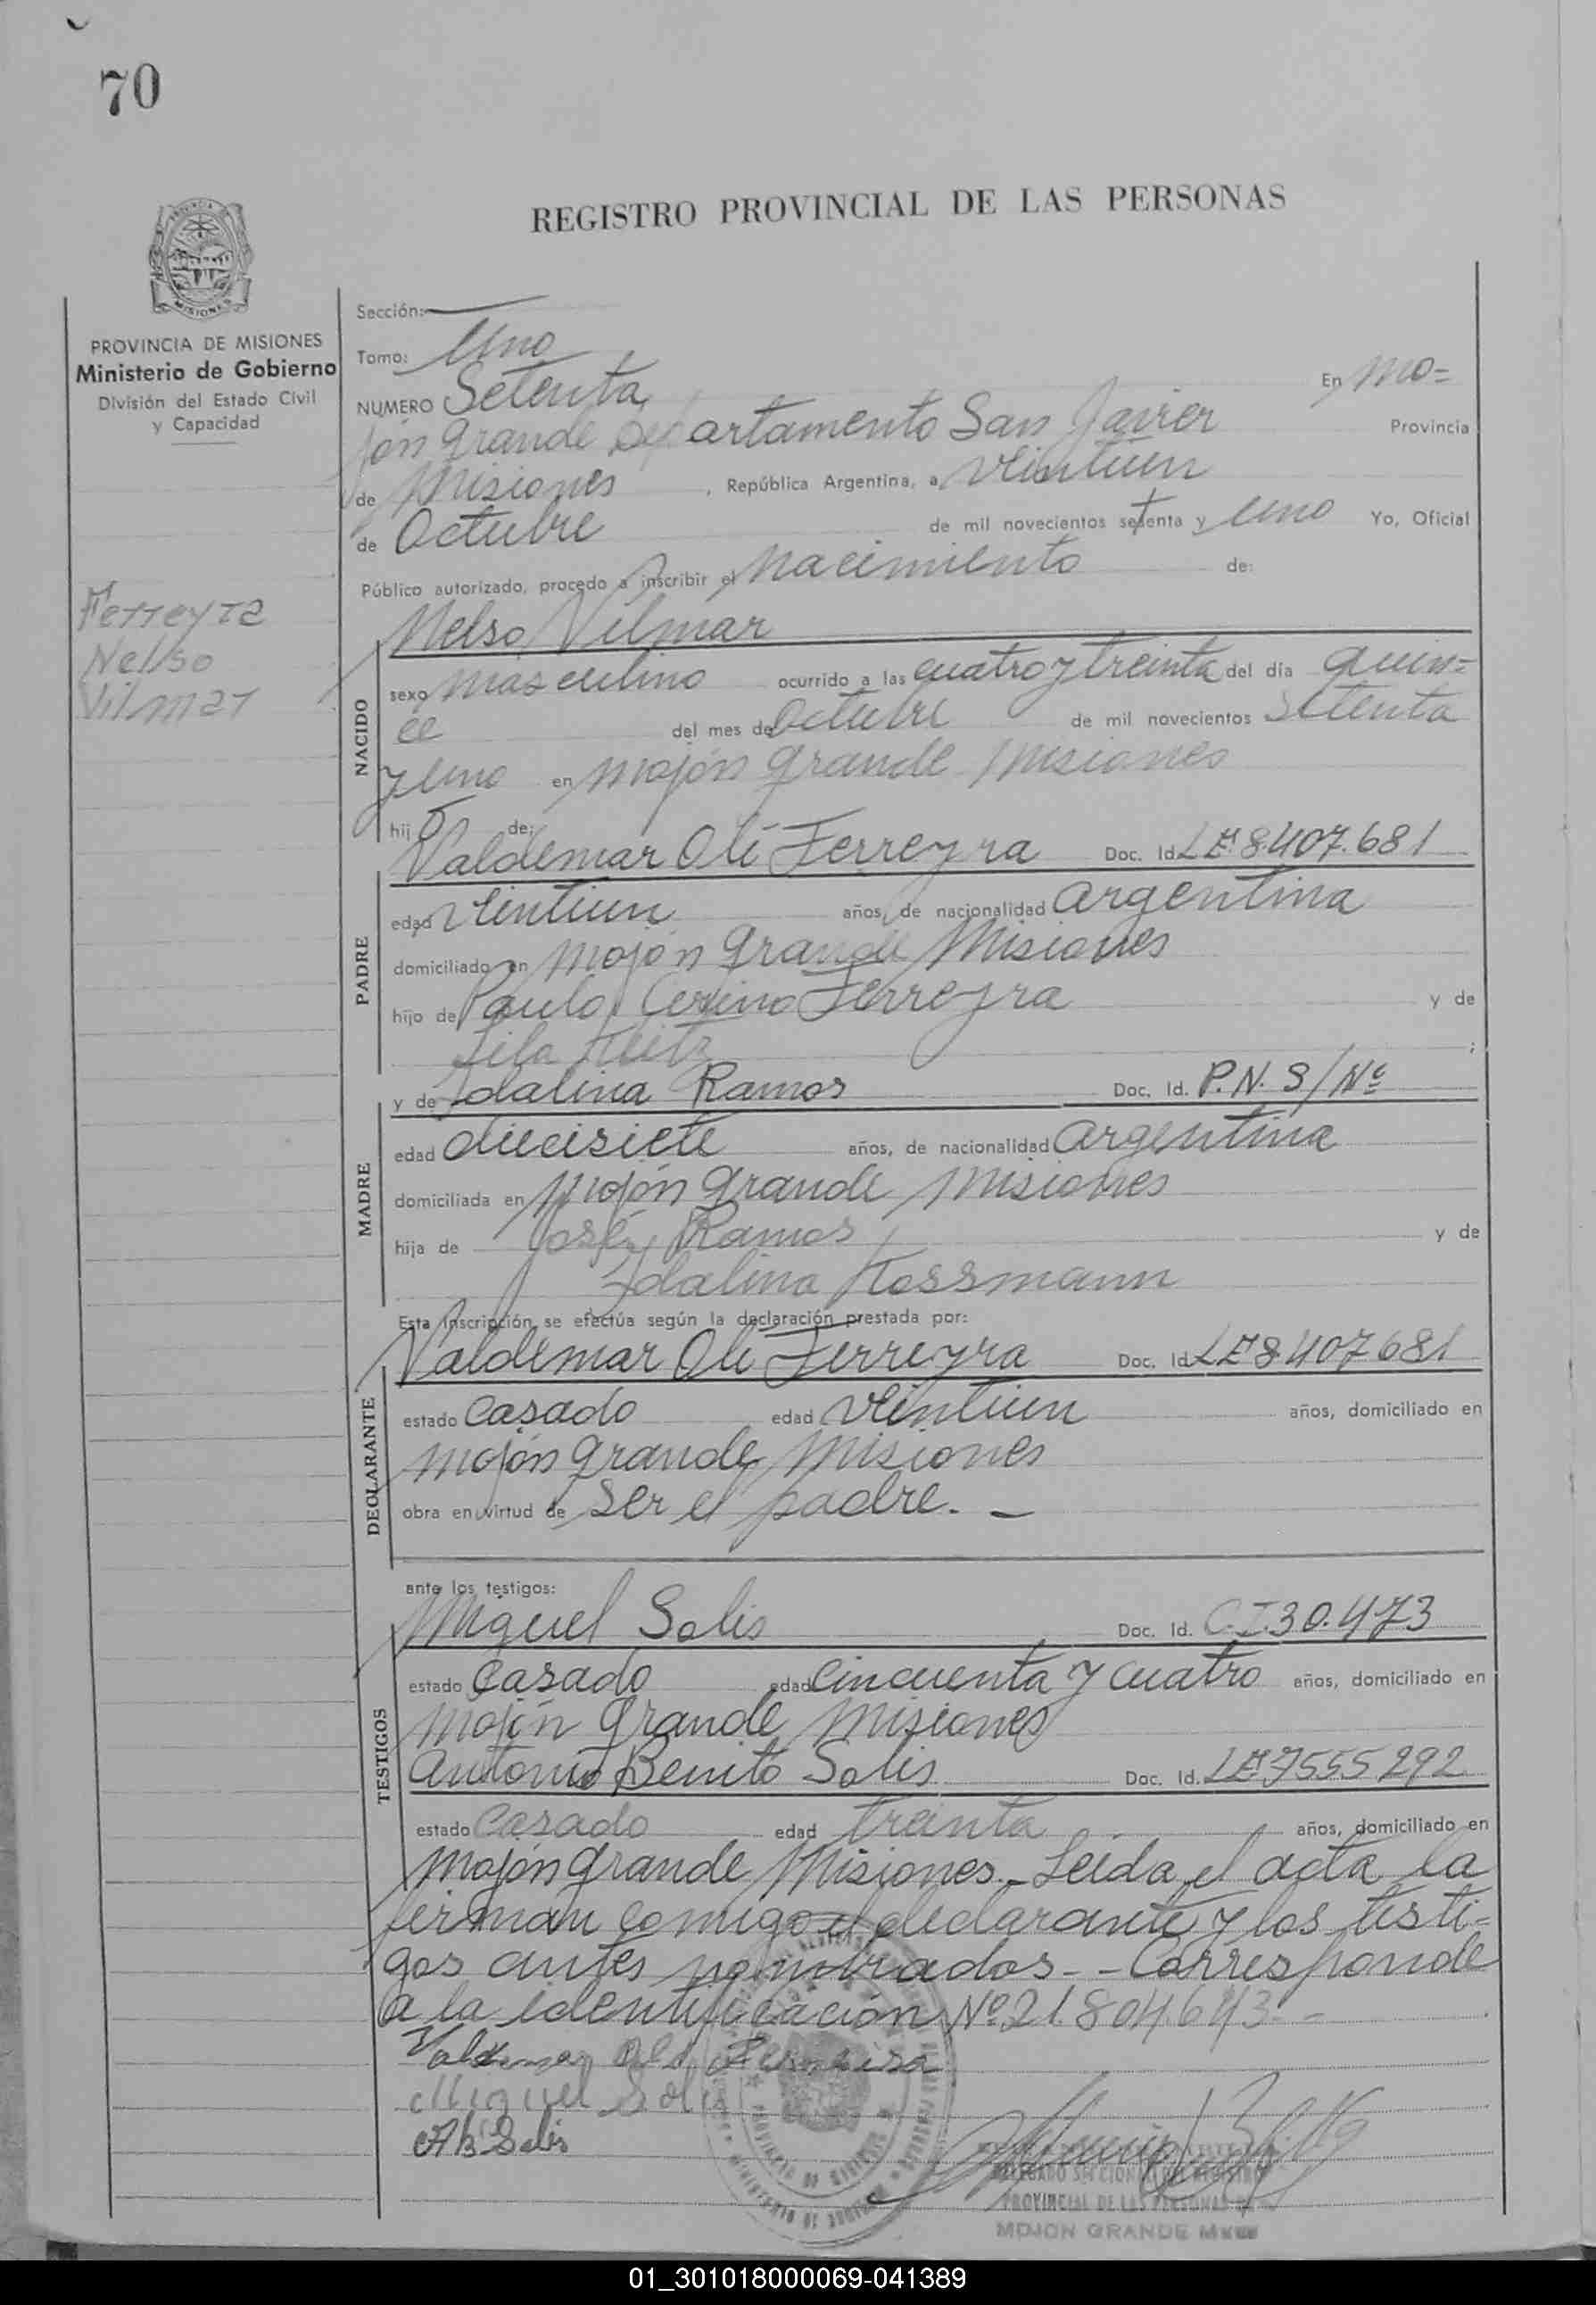 70
REGISTRO PROVINCIAL DE LAS PERSONAS
MISIONES
PROVINCIA DE MISIONES
Ministerio de Gobierno
División del Estado Civil
y Capacidad
Ferreyra
Nelso
Vilmar
Sección:
Tomo: Uno
NUMERO Setenta En Mo=
jón Grande Departamento San Javier Provincia
de Misiones, República Argentina, a Veintiun
de Octubre de mil novecientos setenta y uno Yo, Oficial
Público autorizado, procedo a inscribir el Nacimiento de:
Nelso Vilmar
NACIDO
sexo masculino ocurrido a las cuatro y treinta del día quin=
ce del mes de Octubre de mil novecientos Setenta
y Uno en Mojón Grande Misiones
hijo de:
Valdemar Oli Ferreyra Doc. Id. LE 8.407.681
PADRE
edad Veintiun años, de nacionalidad Argentina
domiciliado en Mojón Grande Misiones
hijo de Paulo Ferreyra y de
;
y de Idalina Ramos Doc. Id. P.N. S/Nº
MADRE
edad diecisiete años, de nacionalidad Argentina
domiciliada en Mojón Grande Misiones
hija de José Ramos y de
Idalina Kossmann
Esta inscripción se efectúa según la declaración prestada por:
Valdemar Oli Ferreyra Doc. Id. LE 8407681
DECLARANTE
estado Casado edad Veintiun años, domiciliado en
Mojón Grande Misiones
obra en virtud de Ser el padre. —
ante los testigos:
Miguel Solis Doc. Id. C.I.30.473
TESTIGOS
estado Casado edad Cincuenta y cuatro años, domiciliado en
Mojón Grande Misiones
Antonio Benito Solis Doc. Id. LE 7555292
estado Casado edad treinta años, domiciliado en
Mojón Grande Misiones.- Leida el acta la
firman comigo el declarante y los testi=
gos antes nombrados.- - Corresponde
a la identificación Nº 21.804.643.-
Miguel Solis
AB Solis
DELEGADO SECCIONAL DEL REGISTRO
PROVINCIAL DE LAS PERSONAS
MOJON GRANDE
01_301018000069-041389